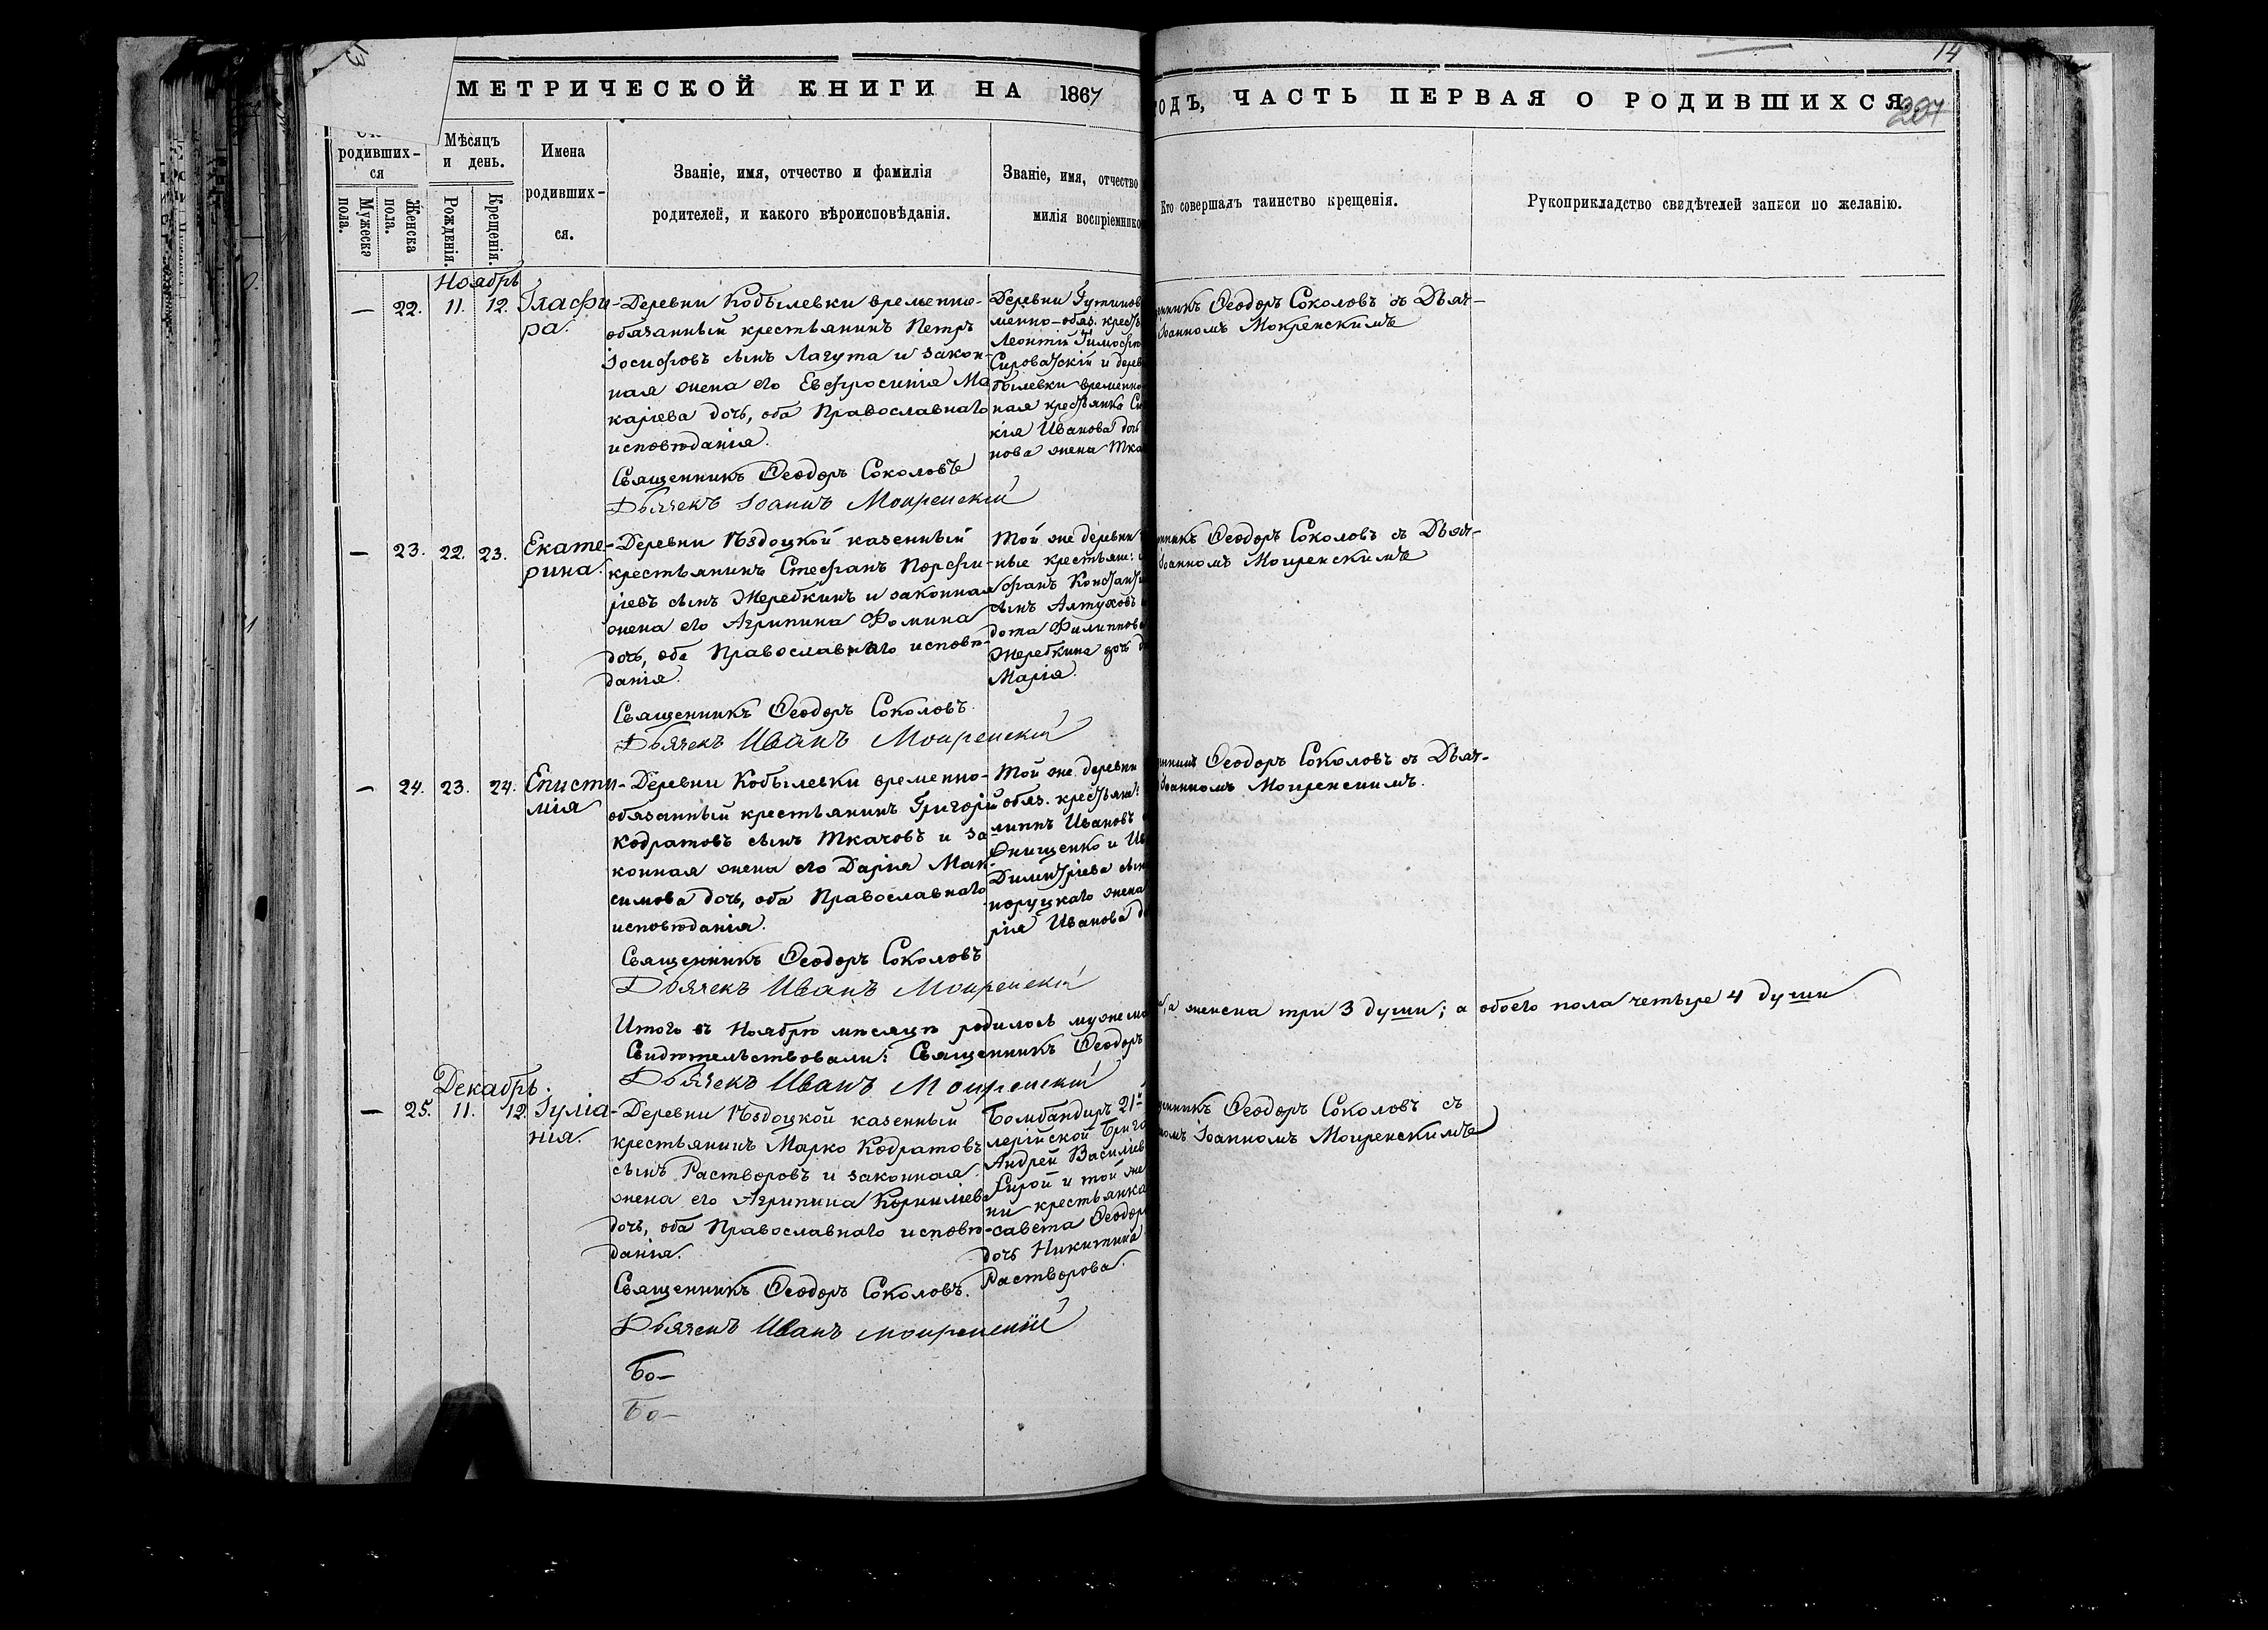 14
МЕТРИЧЕСКОЙ КНИГИ НА 1867
ГОДЪ, ЧАСТЬ ПЕРВАЯ О РОДИВШИХСЯ.
207
родивших-
ся
Мужеска
пола.
Женска
пола.
Мѣсяцъ
и день.
Рожденія.
Крещенія.
Имена
родивших-
ся.
Званіе, имя, отчество и фамилія
родителей, и какого вѣроисповѣданія.
Званіе, имя, отчество
милія воспріемнико
Кто совершалъ таинство крещенія.
Рукоприкладство свидѣтелей записи по желанію.
Ноябрь
— 22. 11. 12. Глафи-
ра.
Деревни Кобылевки временно-
обязанный крестьянинъ Петръ
Іосифовъ сынъ Лагута и закон-
ная жена его Евфросинія Ма
каріева дочь, оба Православнаго
исповѣданія.
Священникъ Ѳеодоръ Соколовъ
Дьячекъ Іоаннъ Мокренскій
Деревни
менно-обяз. кресть
Леонтій Тимоф
Сироватскій и дерев
былевки временно
ная крестьянка
кія Иванова дочь
нова жена Тка
никъ Ѳеодоръ Соколовъ съ Дьяч-
Іоанномъ Мокренскимъ
— 23. 22. 23. Екате-
рина.
Деревни Ѣздоцкой казенный
крестьянинъ Стефанъ Порфи-
ріевъ сынъ Жеребкинъ и законная
жена его Агрипина Фомина
дочь, оба Православнаго исповѣ-
данія.
Священникъ Ѳеодоръ Соколовъ.
Дьячекъ Иванъ Мокренскій
Той же деревни
ные крестьяне:
фанъ Констант
сынъ Алтуховъ
дота Филиппова
Жеребкина дочь
Марія.
никъ Ѳеодоръ Соколовъ съ Дьяч-
Іоанномъ Мокренскимъ
— 24. 23. 24.Еписти-
мія
Деревни Кобылевки временно-
обязанный крестьянинъ Григорій
Кодратовъ сынъ Ткачовъ и за
конная жена его Дарія Мак-
симова дочь, оба Православнаго
исповѣданія.
Священникъ Ѳеодоръ Соколовъ
Дьячекъ Иванъ Мокренскій
Той же деревни
обяз. крестьян:
липпъ Ивановъ
Онищенко и
Димитріева сын
поруцкаго жена
рія Иванова
никъ Ѳеодоръ Соколовъ съ Дьяч-
Іоанномъ Мокренскимъ.
Итого въ Ноябрѣ мѣсяцѣ родилось мужеска
, а женска три 3 души; а обоего пола четыре 4 души
Свидѣтельствовали: Священникъ Ѳеодоръ
Дьячекъ Иванъ Мокренскій
Декабрь.
— 25. 11. 12. Іуліа-
нія.
Деревни Ѣздоцкой казенный
крестьянинъ Марко Кодратовъ
сынъ Растворовъ и законная
жена его Агрипина Корниліева
дочь, оба Православнаго исповѣ-
данія.
Священникъ Ѳеодоръ Соколовъ.
Дьячекъ Иванъ Мокренскій
Бомбандиръ 21й
лерійской Брига
Андрей Василіев
Сирой и той же
ни крестьянка
савета Ѳеодор
дочь Никитина
Растворова.
никъ Ѳеодоръ Соколовъ съ
комъ Іоанномъ Мокренскимъ
Бо—
Бо—